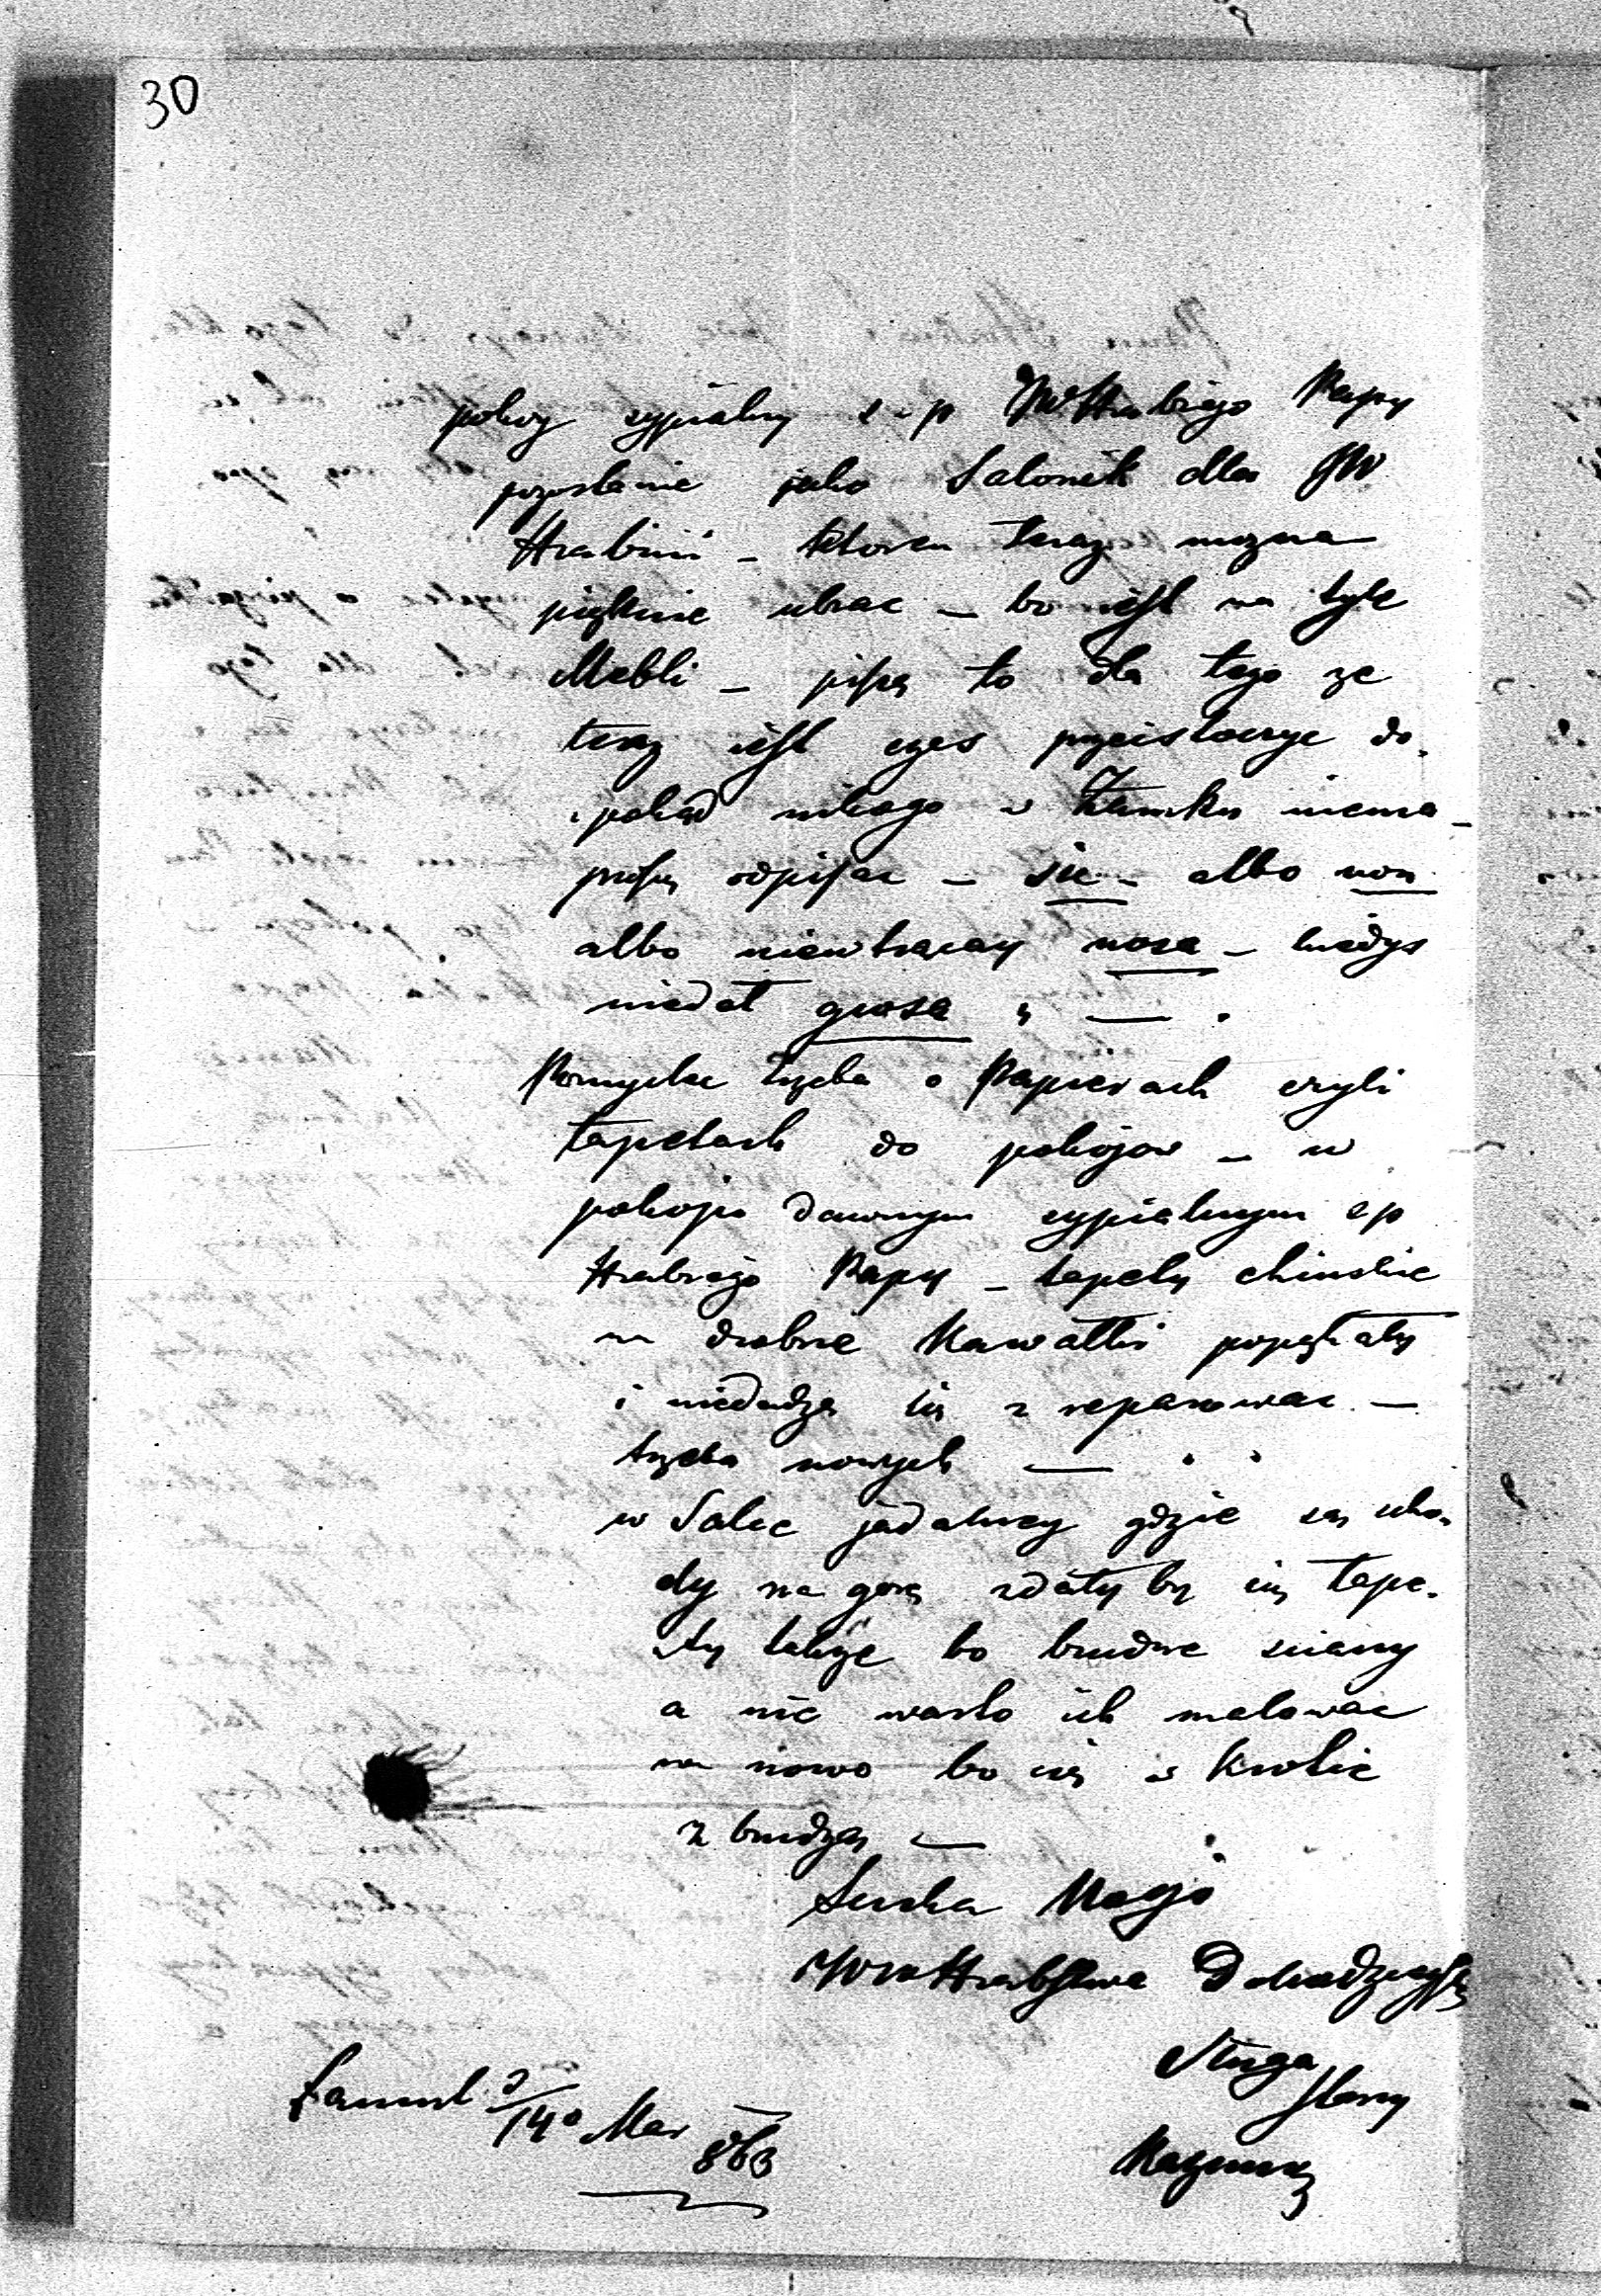 30
pokoy sypialny s-p JWHrabiego Papy
pozostanie jako Salonik dla JW
Hrabini - ktoren teraz mozna
pięknie ubrac - bo jest na tyle
Mebli - piszę to dla tego ze
teraz jest czas przeistoczyc do
pokąd nikogo w Zamku niema -
proszę odpisac - sic - albo non
albo niewtrącay nosa - kiedys
niedał grosa
Pomyslec trzeba o Papierach czyli
tapetach do pokojow - w
pokoju dawnym sypialnym s p
Hrabiego Papy - tapety chinskie
na drobne Kawałki popękały
i niedadzą się z reparowac -
trzeba nowych -
w Salce jadalney gdzie są scho
dy na gorę zdałyby się tape
ty takze bo brudne sciany
a nie warto ich malowac
na nowo bo się w krotce
z brudzą -
Sciska Nogi
JWW Hrabstwa Dobrodzieystwa
Sługa
stary
Kazmirz
Łancut d/14o Mar 863